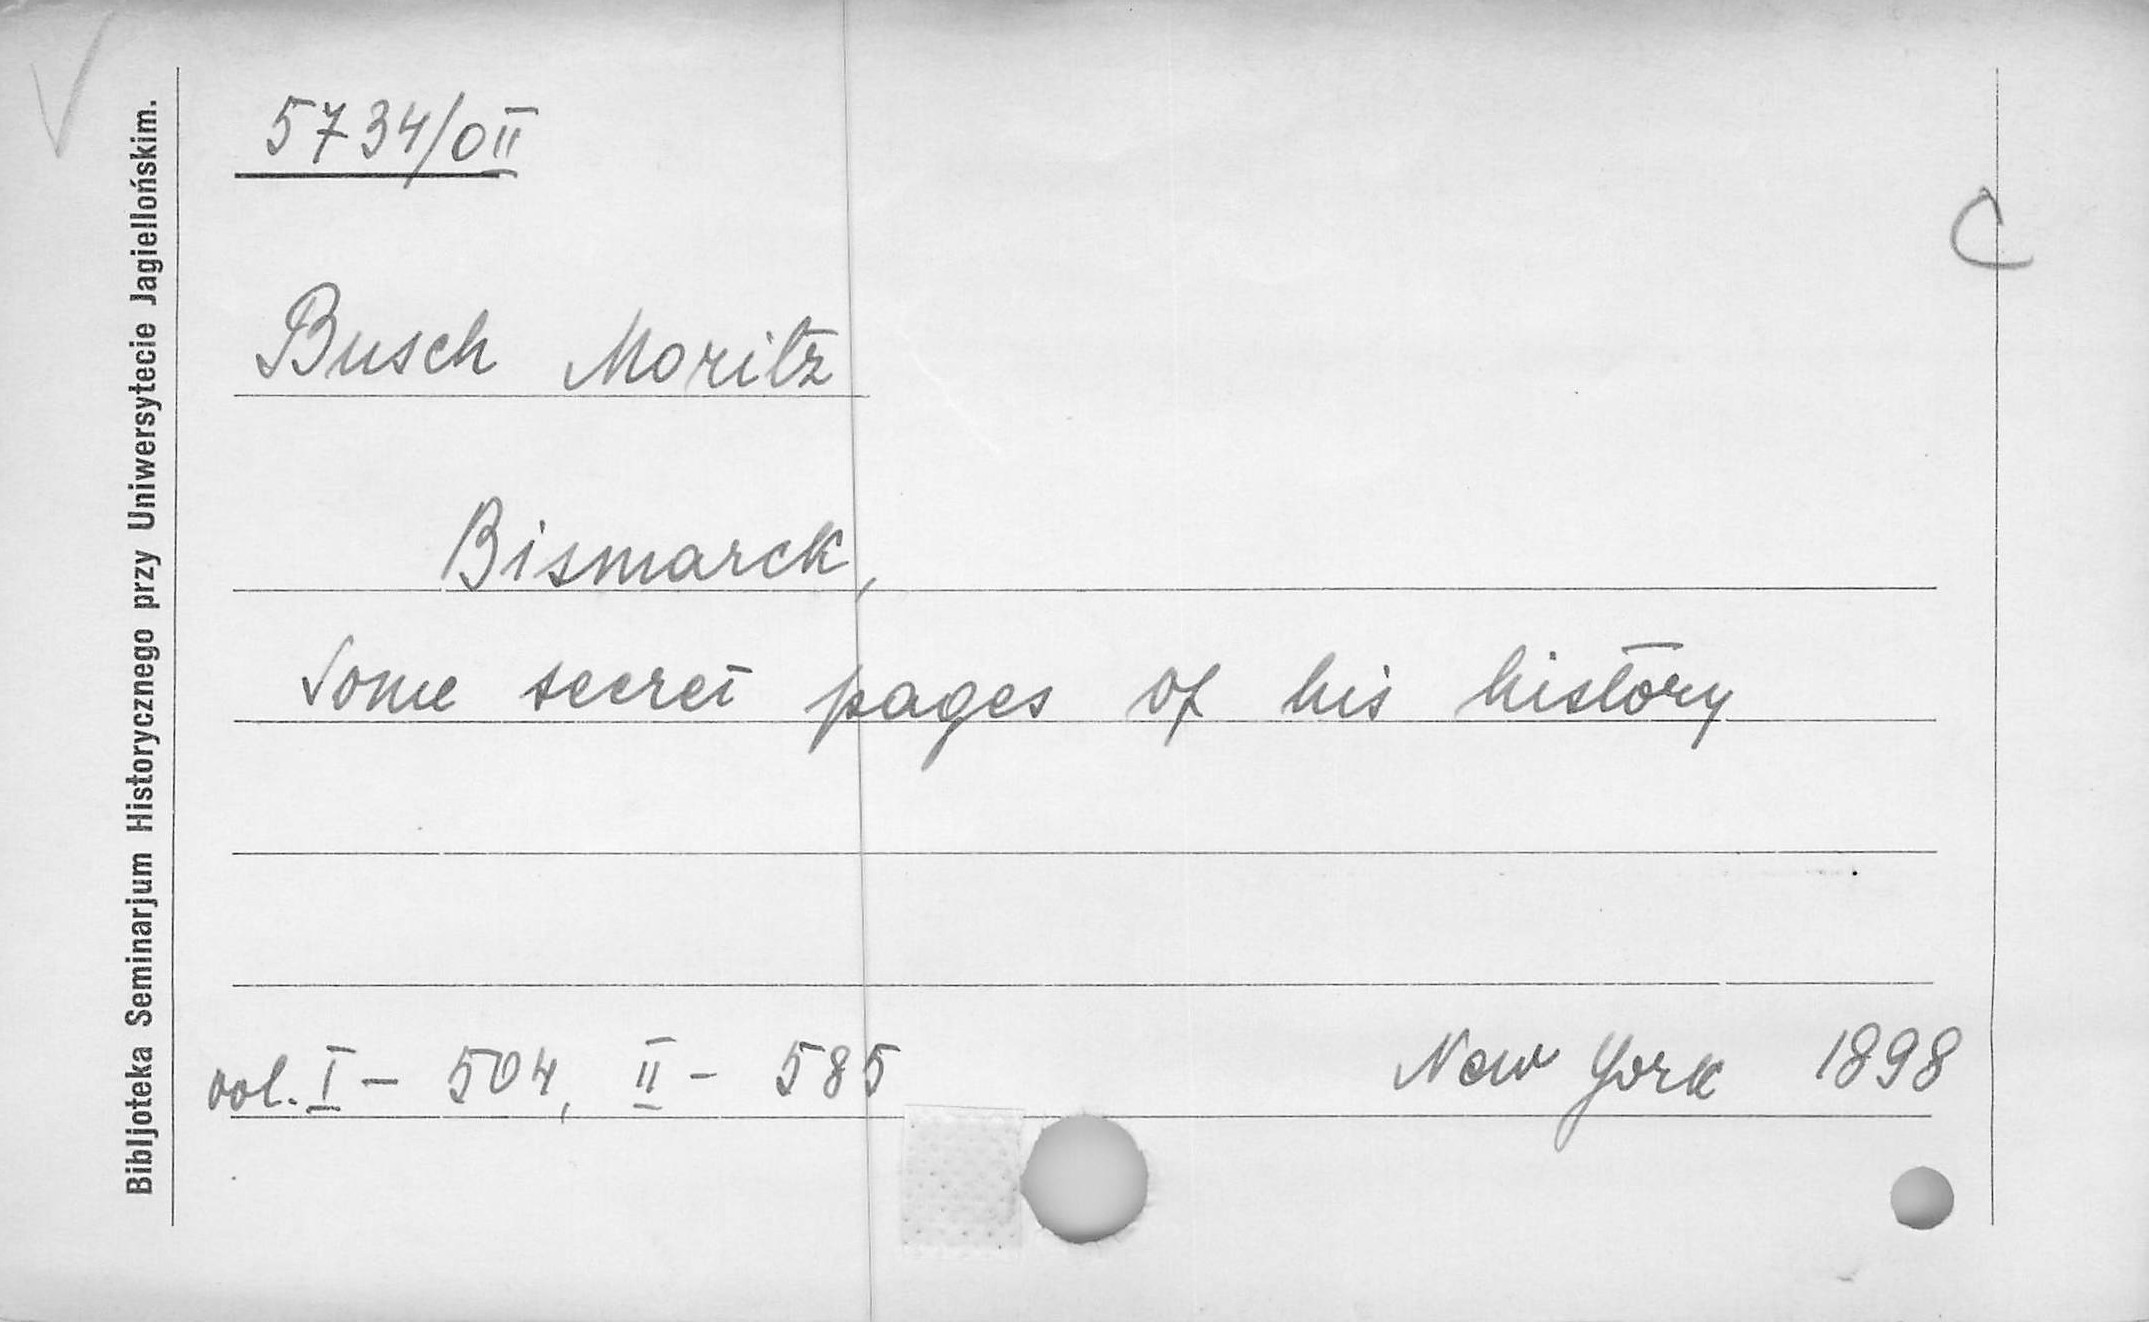 5734/0II
C
Busch Moritz
Bismarck,
Some secret pages of his history
vol. I - 504, II - 585 New York 1898
Bibljoteka Seminarjum Historycznego przy Uniwersytecie Jagiellońskim.